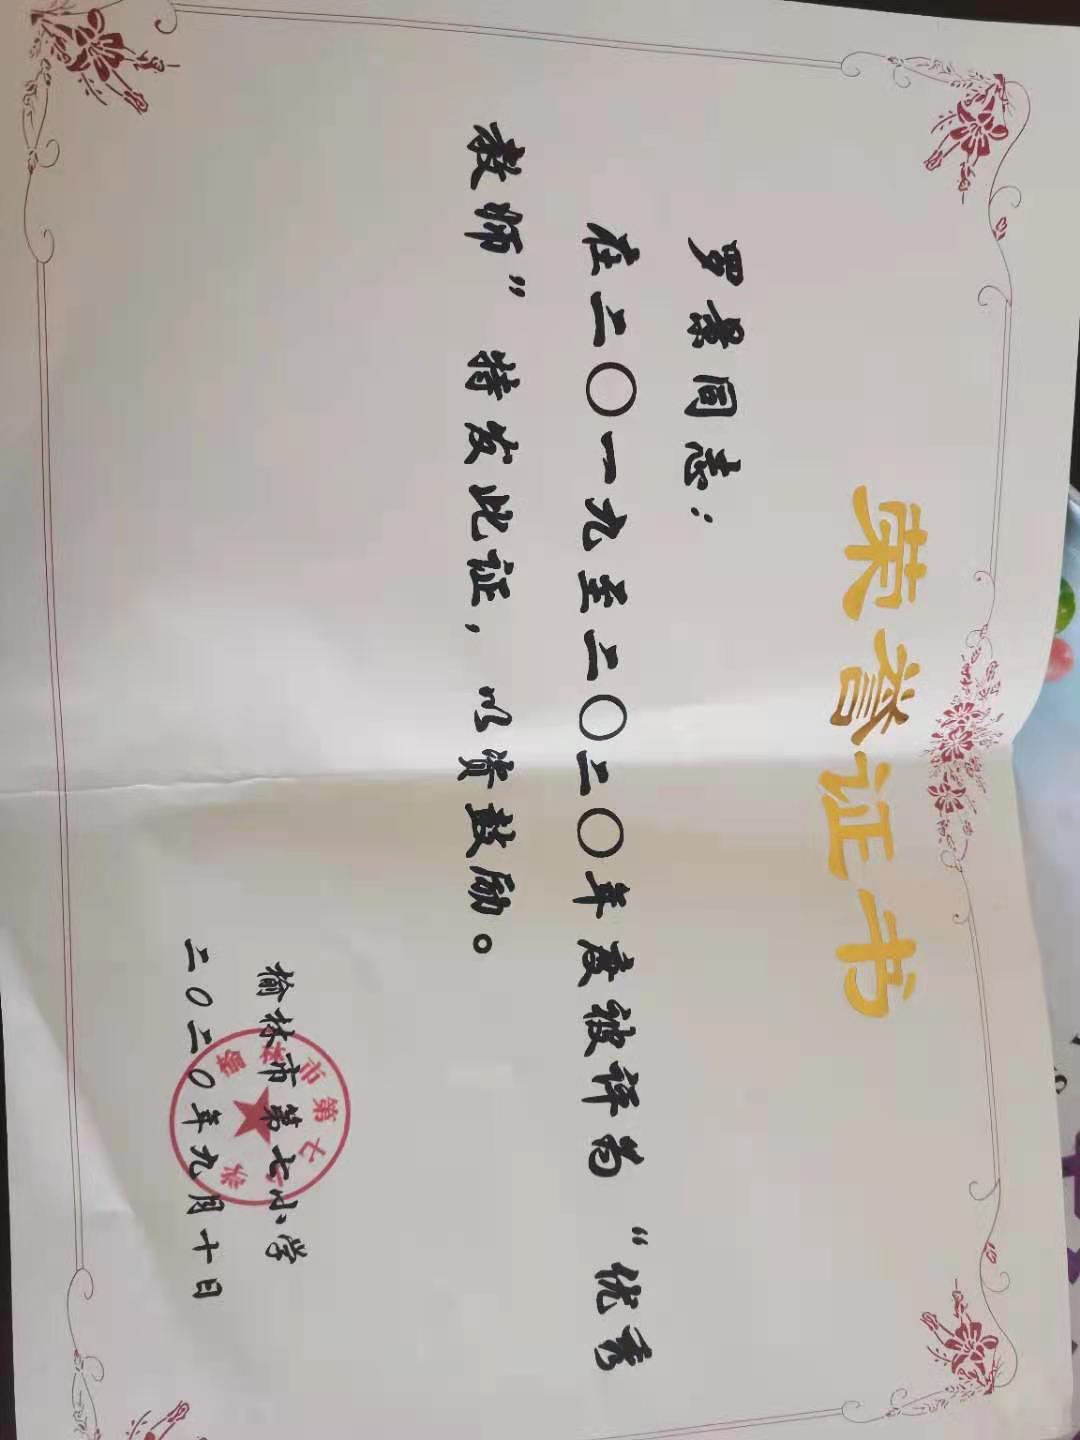 荣誉证书
罗景同志：
在二〇一九至二〇二〇年度被评为“优秀
教师”特发此证，以资鼓励。
榆林市第七小学
二〇二〇年九月十日